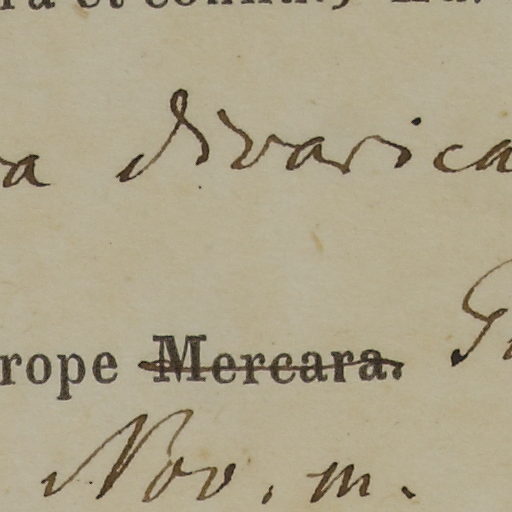 a divarica
rope Mercara.
Nov. m.